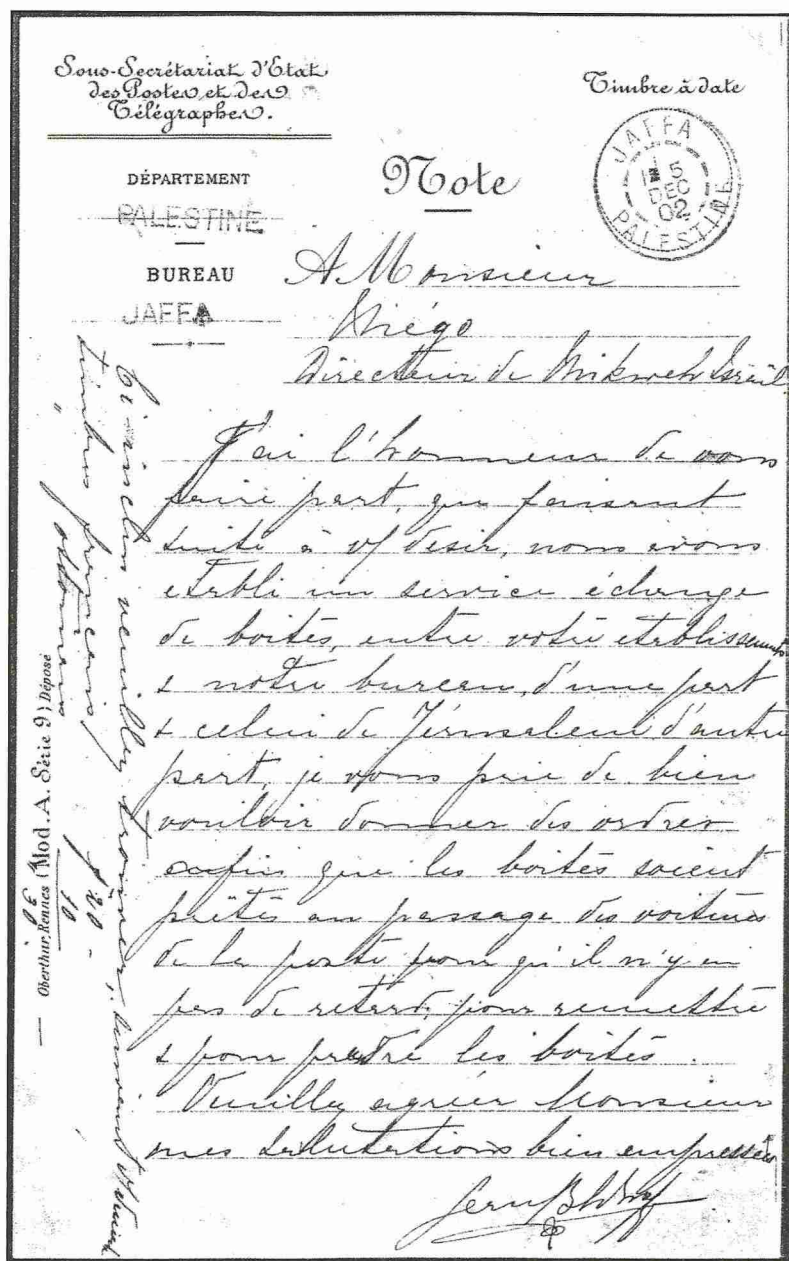 Sous-Secrétariat d'Etat
des Postes et des
Télégraphes.
Timbre à date
JAFFA
5
DEC
02
PALESTINE
DÉPARTEMENT
PALESTINE
BUREAU
JAFFA
Note
A Monsieur
Niégo
Directeur de Mikweh Israël
J'ai l'honneur de vous
faire part, que faisant
suite à v/ desir, nous avons
etabli un service échange
de boites, entre votre etablissement
& notre bureau, d'une part
& celui de Jérusalem d'autre
part, je vous prie de bien
vouloir donner des ordres
afin que les boites soient
prêtes au passage des voitures
de la poste pour qu'il n'y ait
pas de retard, pour remettre
& pour prendre les boites.
Veuillez agréer Monsieur
mes salutations bien empressées
Ci-inclus veuillez trouver, suivant v/ demande
timbres français f 20 -
" ottomans 10
Oberthur, Rennes (Mod. A. Série 9) Déposé